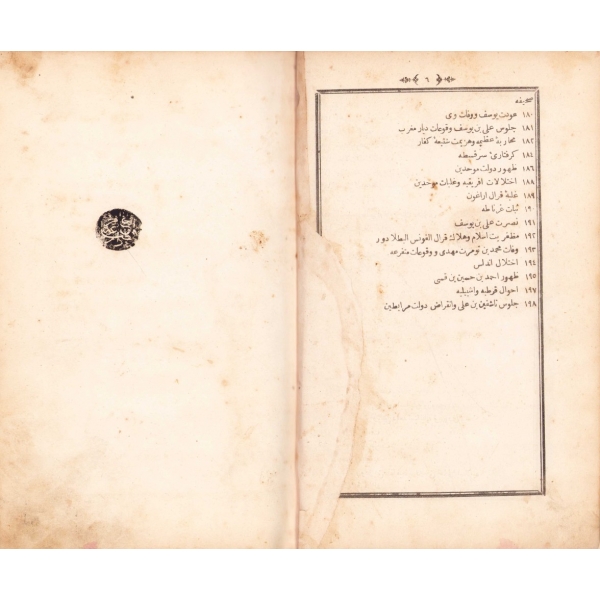 ٦
صحیفه
١٨٠ عودت یوسف ووفات وی
١٨١ جلوس علی بن یوسف وقوعات دیار مغرب
١٨٢ محاربهٔ عظیمه وهزیمت شنیعهٔ کفار
١٨٤ کرفتاریٔ سرقسطه
١٨٦ ظهور دولت موحدین
١٨٨ اختلالات افریقیه وغلبات موحدین
١٨٩ غلبهٔ قرال اراغون
١٩٠ ثبات غرناطه
١٩١ نصرت علی بن یوسف
١٩٢ مظفریت اسلام وهلاک قرال الفونس البطلادور
١٩٣ وفات محمد بن تومرت مهدی ووقوعات متفرعه
١٩٤ اختلال اندلس
١٩٥ ظهور احمد بن حسین بن قسی
١٩٧ احوال قرطبه واشبیلیه
١٩٨ جلوس تاشفین بن علی وانقراض دولت مرابطین